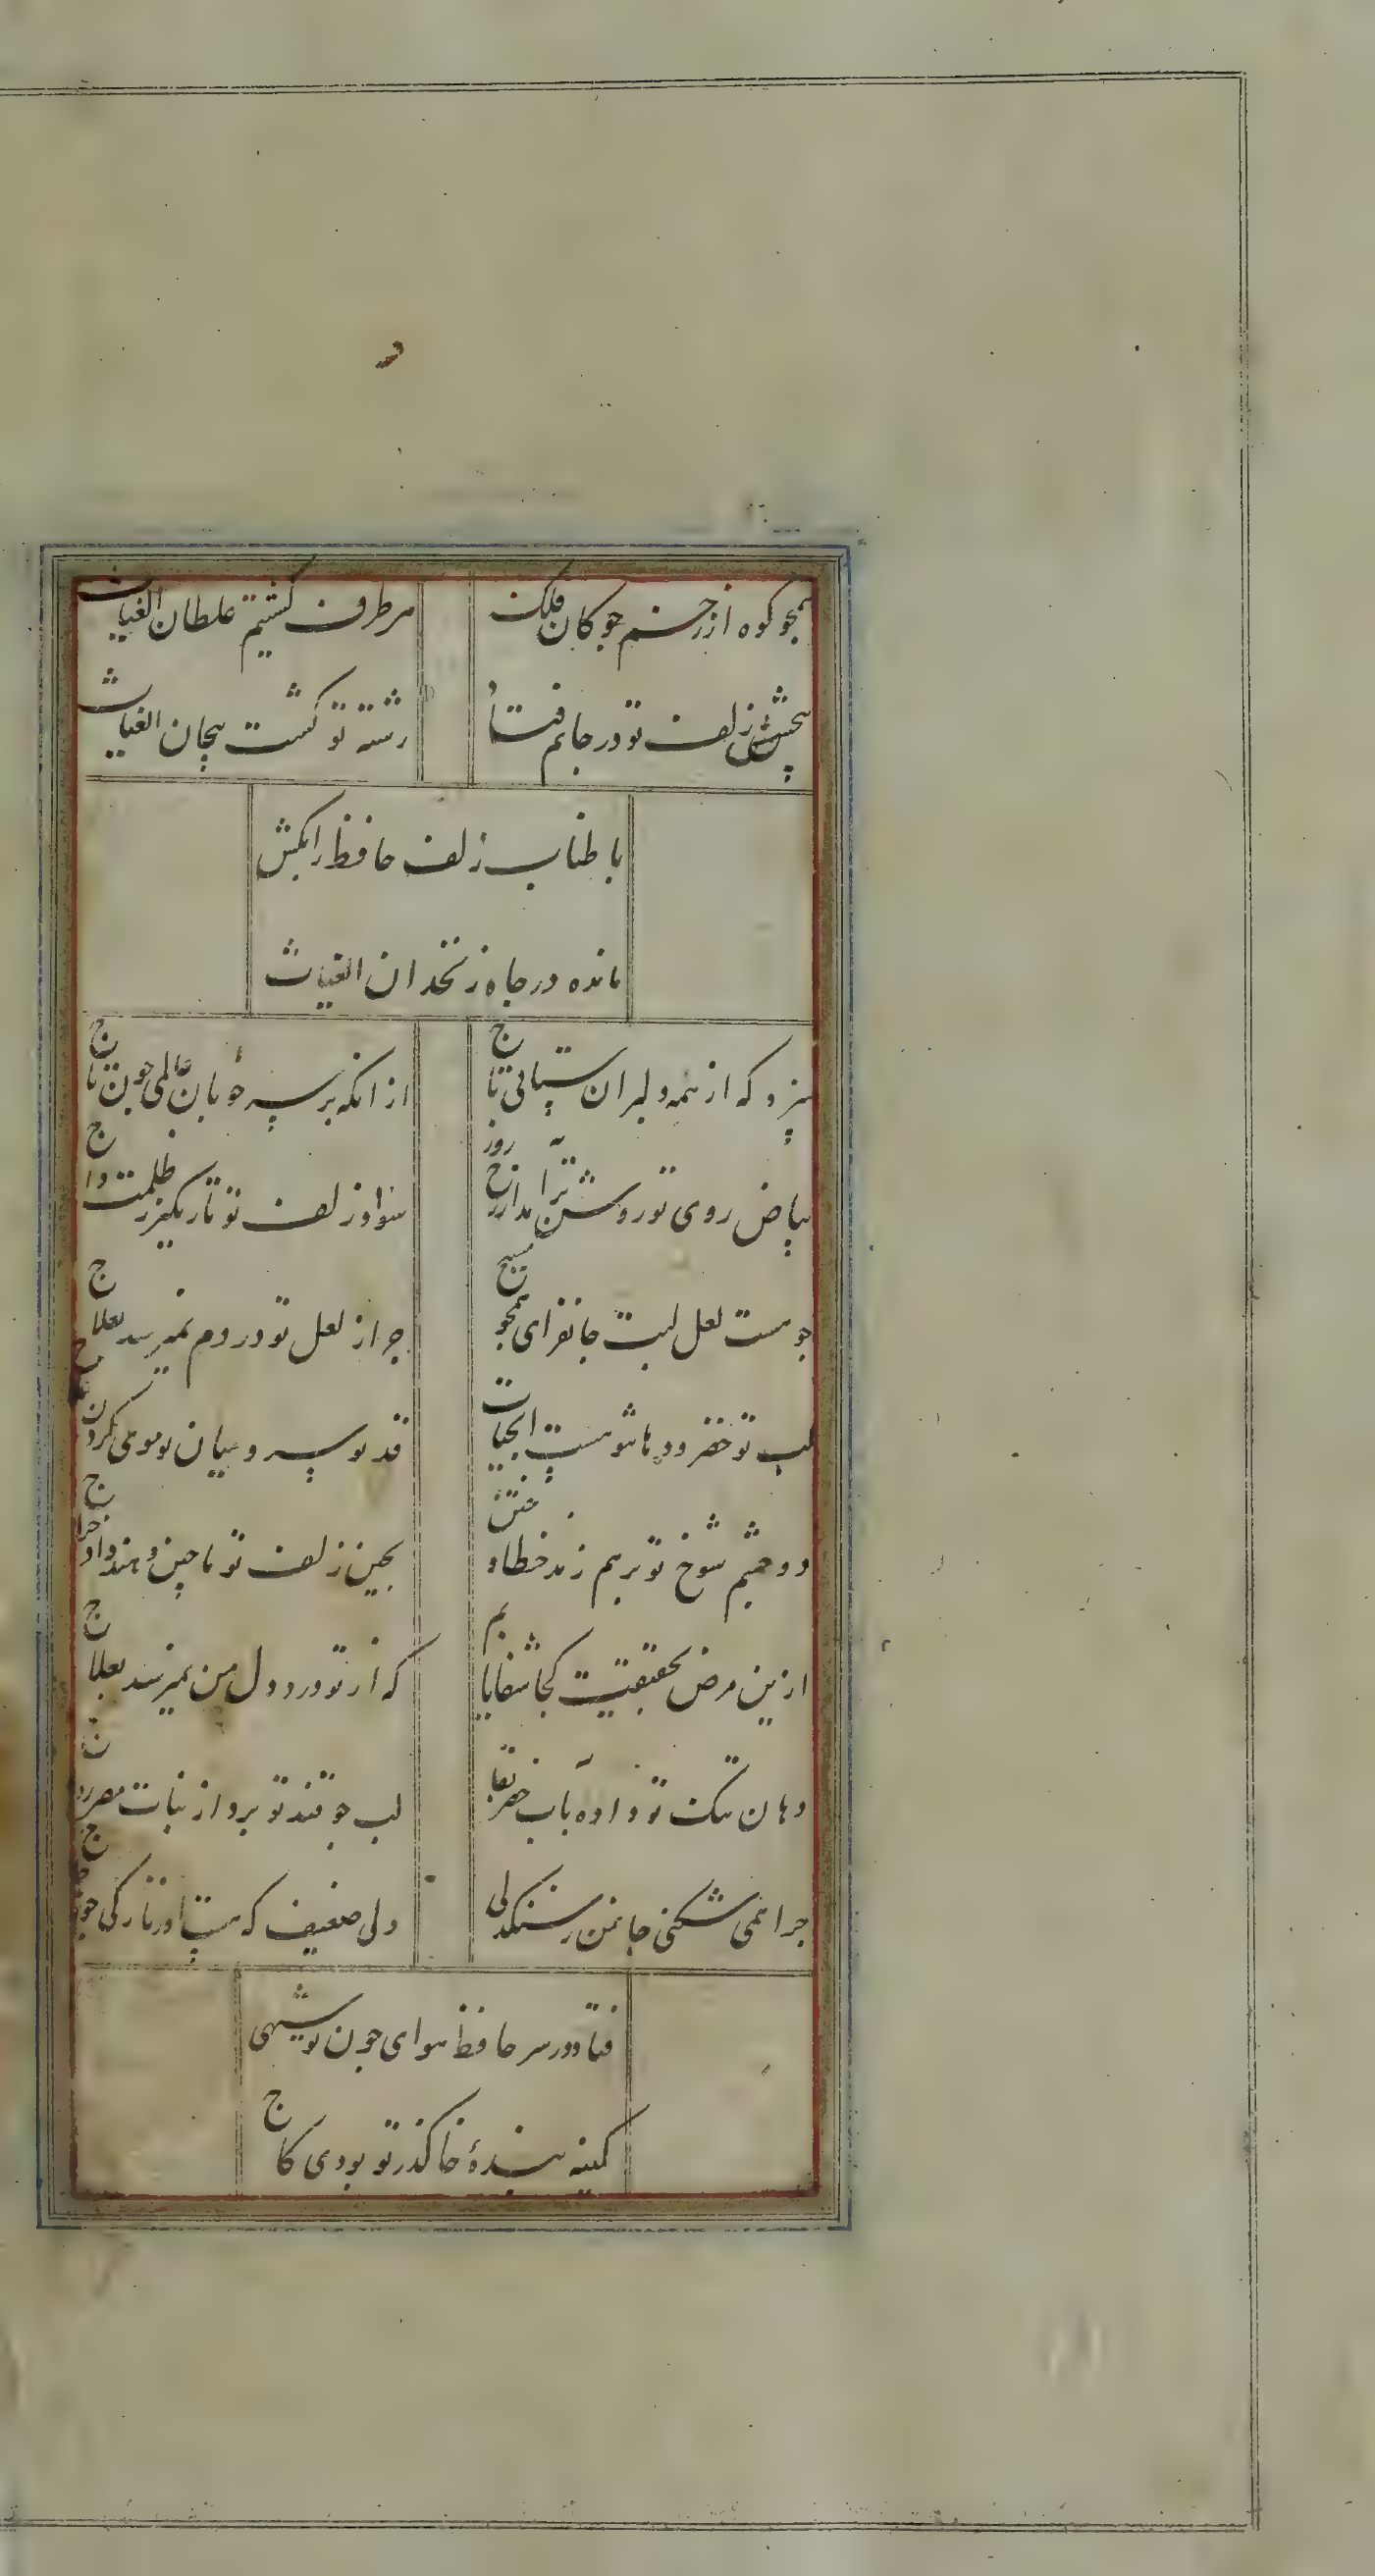 همچو کوه از زخم چوکان فلک
هر طرف کشتیم غلطان الغیاث
پیچش زلف تو در جانم فتاد
رشته تو کشت پیچان الغیاث
با طناب زلف حافظ را بکش
مانده در چاه زنخدان الغیاث
سزد که از همه دلبران ستانی تاج
از انکه بر سر خوبان عالمی چون تاج
بیاض روی تو روشن تر آمد از رخ روز
سواد زلف تو تاریکتر ز ظلمت داج
چو هست لعل لبت جانفزای همچو مسیح
چرا ز لعل تو دردم نمیرسد بعلاج
لب تو خضر و دهان تو هست ابحیات
قد تو سرو و میان تو موی کردن عاج
دو چشم شوخ تو برهم زند خطا و ختن
بچین زلف تو ماچین و هند داد خراج
ازین مرض بحقیقت کجا شفا یابم
که از تو درد دل من نمیرسد بعلاج
دهان تنک تو داده بآب خضر بقا
لب چو قند تو برد از نبات مصر رواج
چرا همی شکنی جانمن ز سنکدلی
دلی ضعیف که هست او ز نازکی چو
فتاد در سر حافظ هوای چون تو شهی
کمینه بندهٔ خاک در تو بودی کاج